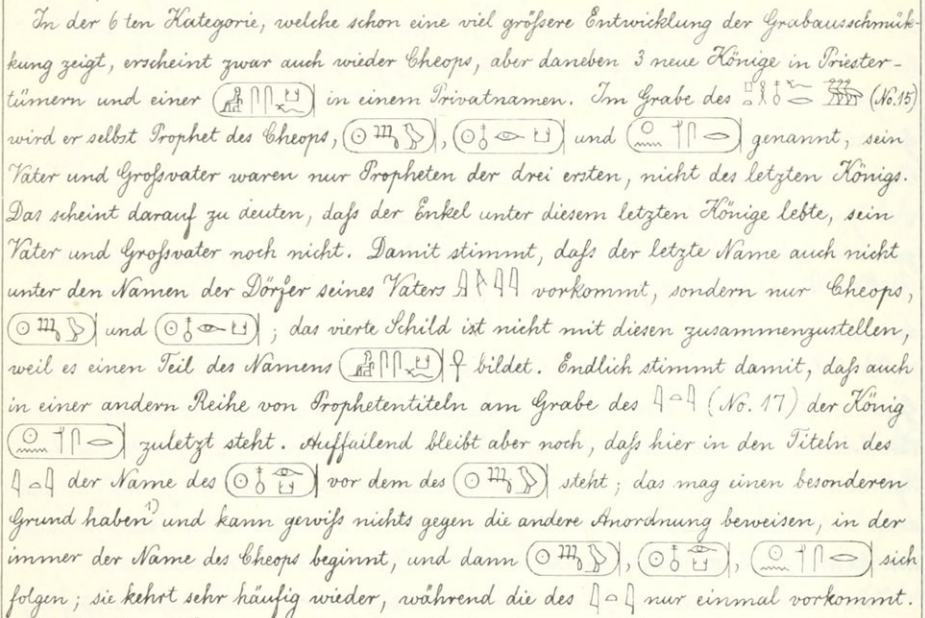 In der 6ten Kategorie, welche schon eine viel größere Entwicklung der Grabausschmük-
kung zeigt, erscheint zwar auch wieder Cheops, aber daneben 3 neue Könige in Priester-
tümern und einer in einem Privatnamen. Im Grabe des (No. 15)
wird er selbst Prophet des Cheops, , und genannt, sein
Vater und Großvater waren nur Propheten der drei ersten, nicht des letzten Königs.
Das scheint darauf zu deuten, daß der Enkel unter diesem letzten Könige lebte, sein
Vater und Großvater noch nicht. Damit stimmt, daß der letzte Name auch nicht
unter den Namen der Dörfer seines Vaters vorkommt, sondern nur Cheops,
und ; das vierte Schild ist nicht mit diesen zusammenzustellen,
weil es einen Teil des Namens bildet. Endlich stimmt damit, daß auch
in einer andern Reihe von Prophetentiteln am Grabe des (No. 17) der König
zuletzt steht. Auffallend bleibt aber noch, daß hier in den Titeln des
der Name des vor dem des steht; das mag einen besonderen
Grund haben¹⁾ und kann gewiß nichts gegen die andere Anordnung beweisen, in der
immer der Name des Cheops beginnt, und dann , , sich
folgen; sie kehrt sehr häufig wieder, während die des nur einmal vorkommt.